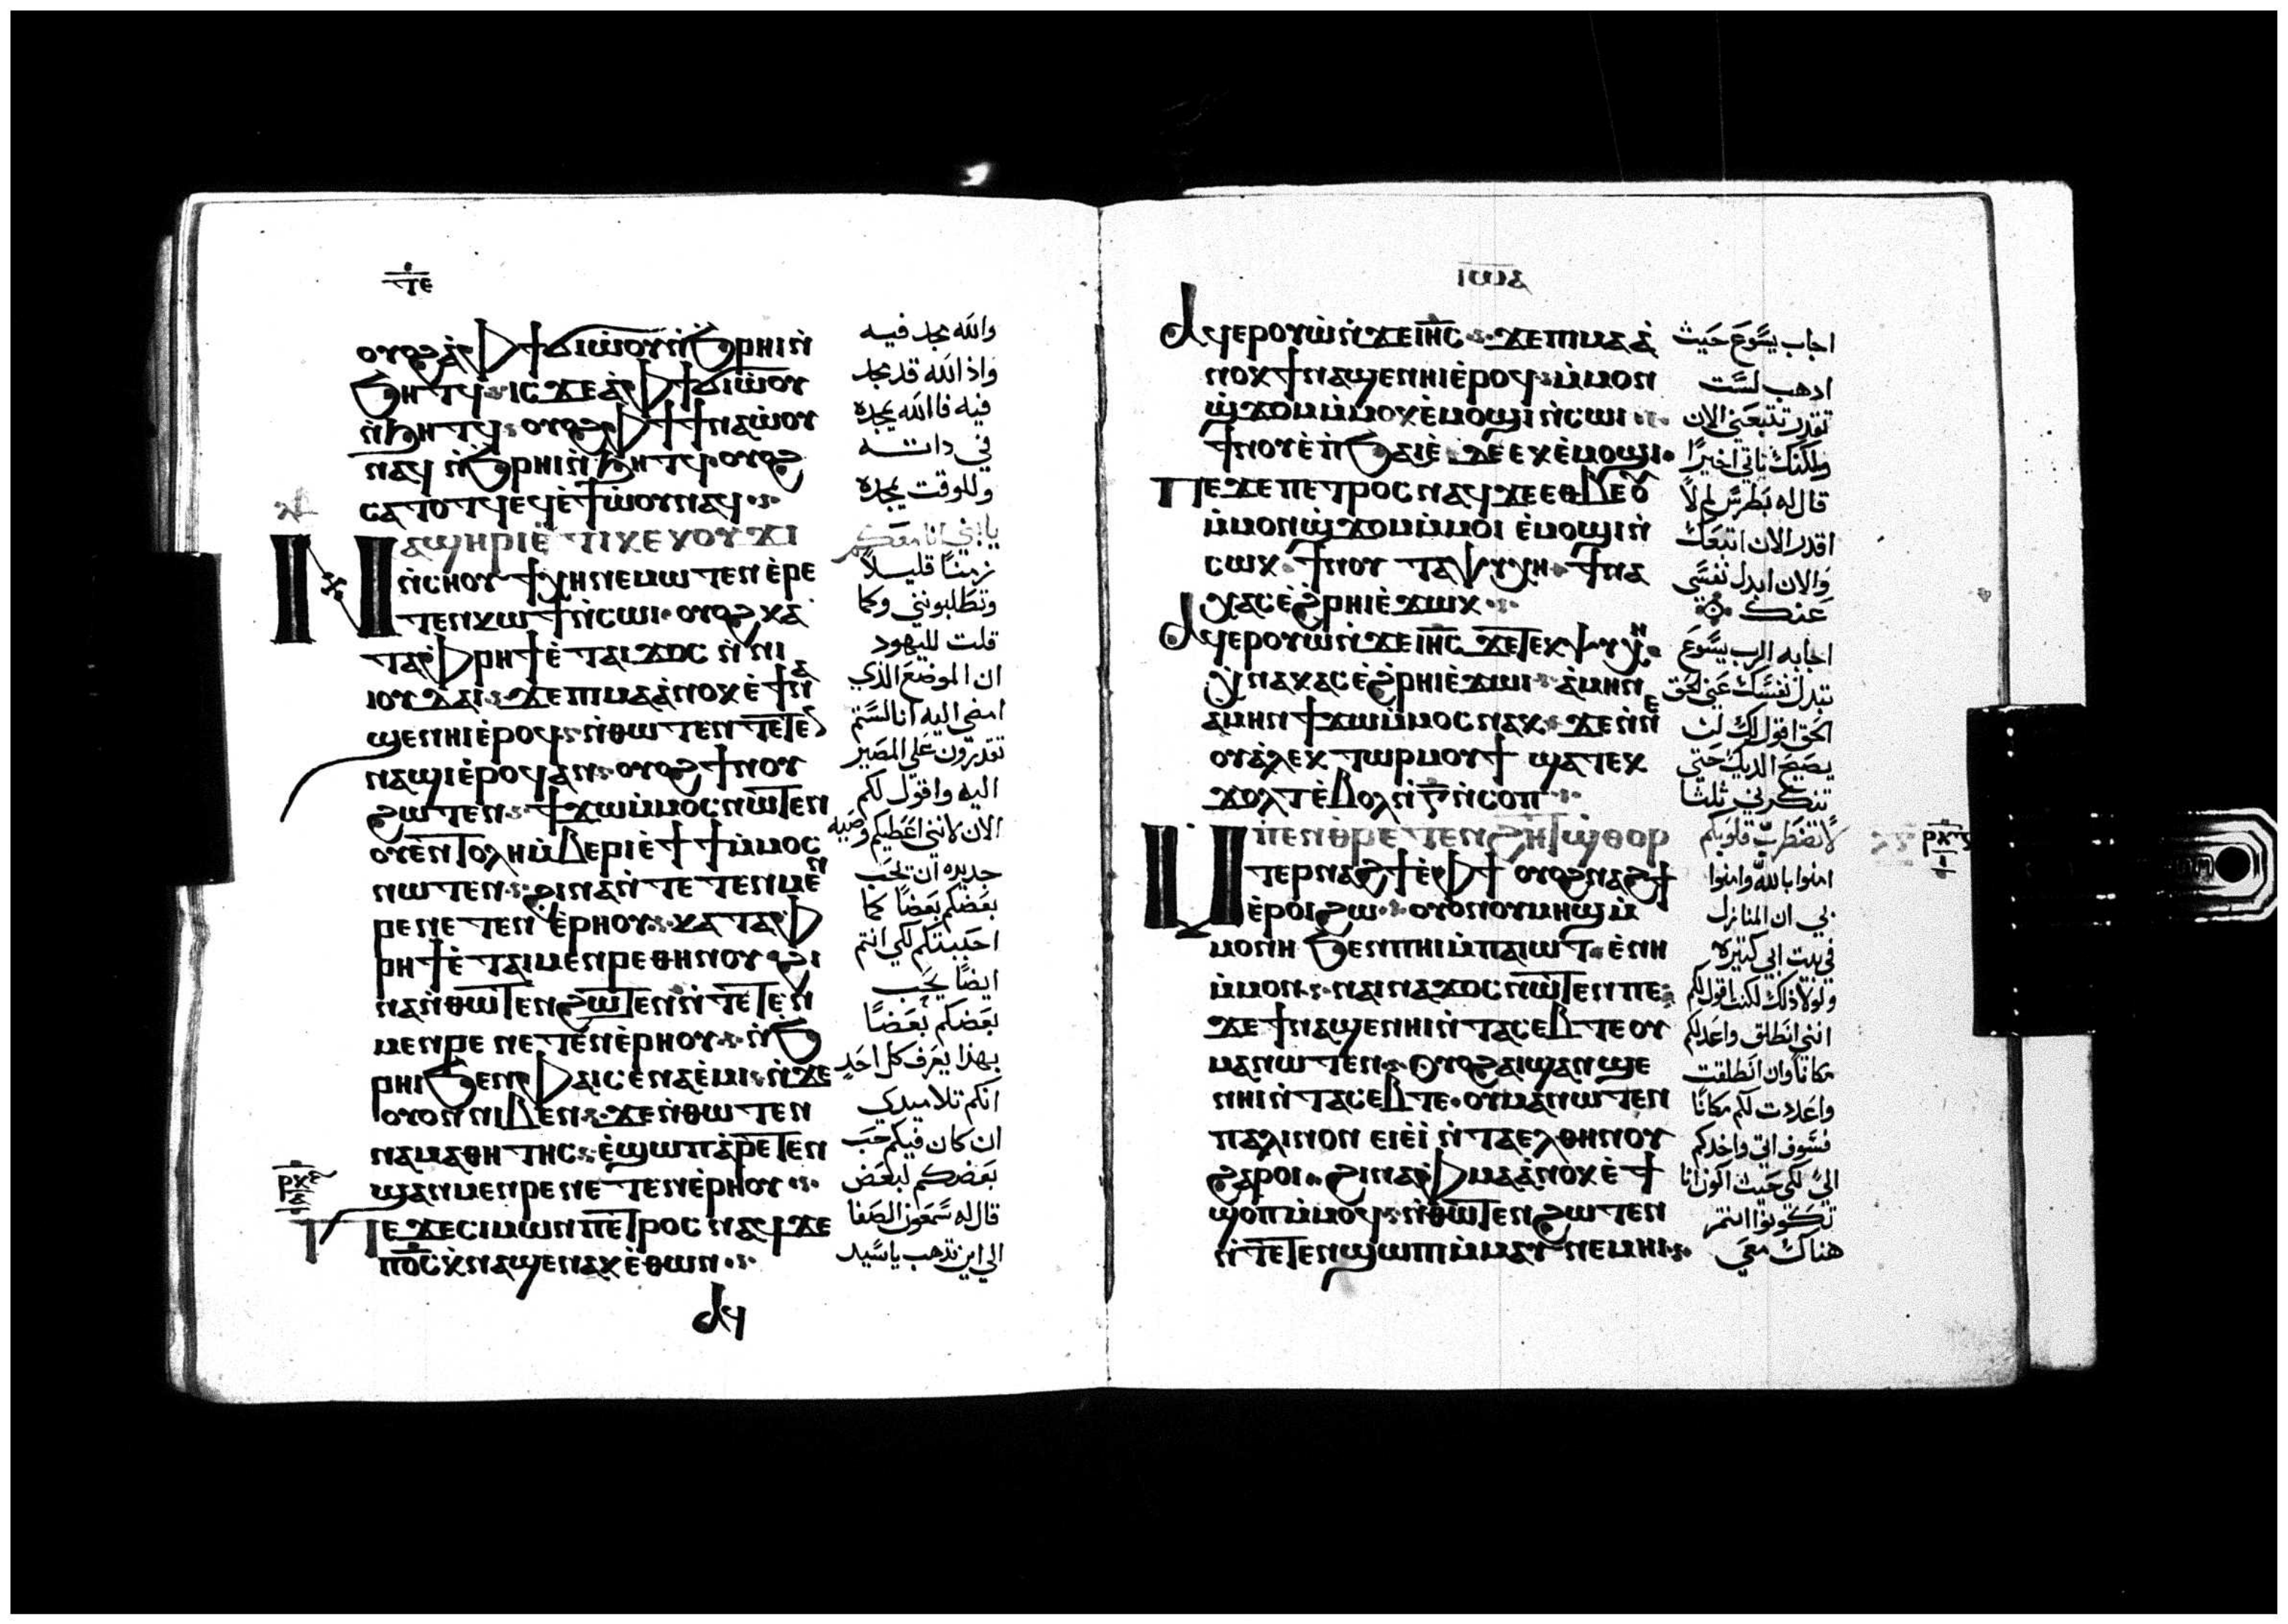 ⲧⲉ
ⲟⲩⲟϩ ⲁ̀ ⲫϯ ϭⲓⲱ̀ⲟⲩ ⲛ̀ϧⲣⲏⲓ ⲛ̀
ϧⲏⲧϥ ⲓⲥϫⲉ ⲁ̀ ⲫϯ ϭⲓⲱ̀ⲟⲩ
ⲛ̀ϧⲏⲧϥ ⲟⲩⲟϩ ⲫϯ ϯⲛⲁⲱ̀ⲟⲩ
ⲛⲁϥ ⲛ̀ϧⲣⲏⲓ ⲛ̀ϧⲏⲧϥ ⲟⲩⲟϩ
ⲥⲁⲧⲟⲧϥ ⲉϥⲉ̀ϯⲱ̀ⲟⲩ ⲛⲁϥ
ⲛⲁϣⲏⲣⲓ ⲉ̀ⲧⲓ ⲕⲉⲕⲟⲩϫⲓ
ⲛ̀ⲥⲏⲟⲩ ϯⲭⲏ ⲛⲉⲙⲱⲧⲉⲛ ⲉ̀ⲣⲉ
ⲧⲉⲛⲕⲱϯ ⲛ̀ⲥⲱⲓ ⲟⲩⲟϩ ⲕⲁ
ⲧⲁ ⲫⲣⲏϯ ⲉ̀ⲧⲁⲓϫⲟⲥ ⲛ̀ⲛⲓ
ⲓⲟⲩⲇⲁⲓ ϫⲉ ⲡⲓⲙⲁ ⲁ̀ⲛⲟⲕ ⲉ̀ϯⲛⲁ
ϣⲉⲛⲏⲓ ⲉ̀ⲣⲟϥ ⲛ̀ⲑⲱⲧⲉⲛ ⲧⲉⲧⲉⲛ
ⲛⲁϣⲓ̀ ⲉ̀ⲣⲟϥ ⲁⲛ ⲟⲩⲟϩ ϯⲛⲟⲩ
ϩⲱⲧⲉⲛ ϯϫⲱ ⲙ̀ⲙⲟⲥ ⲛⲱⲧⲉⲛ
ⲟⲩⲉⲛⲧⲟⲗⲏ ⲙ̀ⲃⲉⲣⲓ ⲉ̀ϯϯ ⲙ̀ⲙⲟⲥ
ⲛⲱⲧⲉⲛ ϩⲓⲛⲁ ⲛ̀ⲧⲉⲧⲉⲛⲙⲉⲛ
ⲣⲉ ⲛⲉⲧⲉⲛⲉ̀ⲣⲏⲟⲩ ⲕⲁⲧⲁ ⲫ
ⲣⲏϯ ⲉ̀ⲧⲁⲓⲙⲉⲛⲣⲉ ⲑⲏⲛⲟⲩ ϩⲓ
ⲛⲁ ⲛ̀ⲑⲱⲧⲉⲛ ϩⲱⲧⲉⲛ ⲛ̀ⲧⲉⲧⲉⲛ
ⲙⲉⲛⲣⲉ ⲛⲉⲧⲉⲛⲉ̀ⲣⲏⲟⲩ ⲛ̀ϧ
ⲣⲏⲓ ϧⲉⲛ ⲫⲁⲓ ⲥⲉⲛⲁⲉ̀ⲙⲓ ⲛ̀ϫⲉ
ⲟⲩⲟⲛ ⲛⲓⲃⲉⲛ ϫⲉ ⲛ̀ⲑⲱⲧⲉⲛ
ⲛⲁⲙⲁⲑⲏⲧⲏⲥ ⲉ̀ϣⲱⲡ ⲁ̀ⲣⲉⲧⲉⲛ
ϣⲁⲛⲙⲉⲛⲣⲉ ⲛⲉⲧⲉⲛⲉ̀ⲣⲏⲟⲩ
ⲡⲉϫⲉ ⲥⲓⲙⲱⲛ ⲡⲉⲧⲣⲟⲥ ⲛⲁϥ ϫⲉ
ⲡⲟ̅ⲥ̅ ⲭ̀ⲛⲁϣⲉⲛⲁⲕ ⲉ̀ⲑⲱⲛ
ⲁϥ
والله مجد فيه
واذ الله قد مجد
فيه فالله يمجده
في داته
وللوقت يمجده
يا بني انا معكم
زمنًا قليلاً
وتطلبونني وكما
قلت لليهود
ان الموضع الذي
امضي اليه انا لستم
تقدرون على المصير
اليه واقول لكم
الان لانني اعطيكم وصيه
جديده ان يحب
بعضكم بعضًا كما
احببتكم لكي انتم
ايضًا يحب
بعضكم بعضًا
بهذا يعرف كل احد
انكم تلاميدي
ان كان فيكم حب
بعضكم لبعض
قال له سمعون الصفا
الى اين تذهب يا سيد
ⲓⲱⲁ
ⲁϥⲉⲣⲟⲩⲱ̀ ⲛ̀ϫⲉ ⲓⲏ̅ⲥ̅ ϫⲉ ⲡⲓⲙⲁ ⲁ̀
ⲛⲟⲕ ϯⲛⲁϣⲉⲛⲏⲓ ⲉ̀ⲣⲟϥ ⲙ̀ⲙⲟⲛ
ϣ̀ϫⲟⲙ ⲙ̀ⲙⲟⲕ ⲉ̀ⲙⲟϣⲓ ⲛ̀ⲥⲱⲓ
ϯⲛⲟⲩ ⲉ̀ⲡ̀ϧⲁⲉ̀ ⲇⲉ ⲉⲕⲉ̀ⲙⲟϣⲓ
ⲡⲉϫⲉ ⲡⲉⲧⲣⲟⲥ ⲛⲁϥ ϫⲉ ⲉⲑⲃⲉⲟⲩ
ⲙ̀ⲙⲟⲛ ϣ̀ϫⲟⲙ ⲙ̀ⲙⲟⲓ ⲉ̀ⲙⲟϣⲓ ⲛ̀
ⲥⲱⲕ ϯⲛⲟⲩ ⲧⲁⲯⲩⲭⲏ ϯⲛⲁ
ⲭⲁⲥ ⲉ̀ϩⲣⲏⲓ ⲉ̀ϫⲱⲕ
ⲁϥⲉⲣⲟⲩⲱ̀ ⲛ̀ϫⲉ ⲓⲏ̅ⲥ̅ ϫⲉ ⲧⲉⲕⲯⲩⲭⲏ
ⲭ̀ⲛⲁⲭⲁⲥ ⲉ̀ϩⲣⲏⲓ ⲉ̀ϫⲱⲓ ⲁ̀ⲙⲏⲛ
ⲁ̀ⲙⲏⲛ ϯϫⲱ ⲙ̀ⲙⲟⲥ ⲛⲁⲕ ϫⲉ ⲛ̀ⲛⲉ
ⲟⲩⲁ̀ⲗⲉⲕⲧⲱⲣ ⲙⲟⲩϯ ϣⲁⲧⲉⲕ
ϫⲟⲗⲧ ⲉ̀ⲃⲟⲗ ⲛ̀ⲅ̅ ⲛ̀ⲥⲟⲡ
ⲙ̀ⲡⲉⲛⲑⲣⲉ ⲡⲉⲧⲉⲛϩⲏⲧ ϣ̀ⲑⲟⲣ
ⲧⲉⲣ ⲛⲁϩϯ ⲉ̀ⲫϯ ⲟⲩⲟϩ ⲛⲁϩϯ
ⲉ̀ⲣⲟⲓ ϩⲱ ⲟⲩⲟⲛ ⲟⲩⲙⲏϣ ⲙ̀
ⲙⲟⲛⲏ ϧⲉⲛ ⲡⲏⲓ ⲙ̀ⲡⲁⲓⲱⲧ ⲉ̀ⲛⲏ
ⲙ̀ⲙⲟⲛ ⲛⲁⲓⲛⲁϫⲟⲥ ⲛⲱⲧⲉⲛ ⲡⲉ
ϫⲉ ϯⲛⲁϣⲉⲛⲏⲓ ⲛ̀ⲧⲁⲥⲉⲃⲧⲉ ⲟⲩ
ⲙⲁ ⲛⲱⲧⲉⲛ ⲟⲩⲟϩ ⲁⲓϣⲁⲛϣⲉ
ⲛⲏⲓ ⲛ̀ⲧⲁⲥⲉⲃⲧⲉ ⲟⲩⲙⲁ ⲛⲱⲧⲉⲛ
ⲡⲁⲗⲓⲛ ⲟⲛ ⲉⲓⲉ̀ⲓ̀ ⲛ̀ⲧⲁⲉⲗ ⲑⲏⲛⲟⲩ
ϩⲁⲣⲟⲓ ϩⲓⲛⲁ ⲫⲙⲁ ⲁ̀ⲛⲟⲕ ⲉ̀ϯ
ϣⲟⲡ ⲙ̀ⲙⲟϥ ⲛ̀ⲑⲱⲧⲉⲛ ϩⲱⲧⲉⲛ
ⲛ̀ⲧⲉⲧⲉⲛϣⲱⲡⲓ ⲙ̀ⲙⲁⲩ ⲛⲉⲙⲏⲓ
اجاب يسوع حيث
ادهب لست
تقدر تتبعني الان
ولكنك تاتي اخيرًا
قال له بطرس لم لا
اقدر الان اتبعك
والان ابدل نفسي
عنك
اجابه الرب يسوع
تبدل نفسك عني الحق
الحق اقول لك لن
يصيح الديك حتى
تنكرني ثلثا
لا تضطرب قلوبكم
امنوا بالله وامنوا
بي ان المنازل
في بيت ابي كتيره
ولولا ذلك لكنت اقول لكم
انني انطلق واعد لكم
مكانًا وان انطلقت
واعددت لكم مكانًا
فسوف اتي واخدكم
اليَّ لكي حيث اكون انا
تكونوا انتم
هناك معي